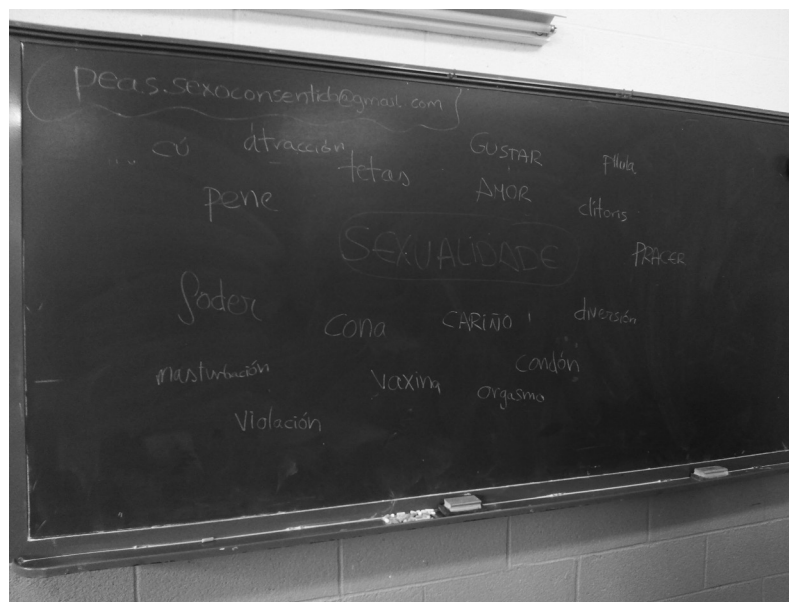 peas.sexoconsentido@gmail.com
... cú atracción tetas GUSTAR píllula
pene AMOR clítoris
SEXUALIDADE PRACER
foder cona CARIÑO diversión
masturbación vaxina condón
orgasmo
violación